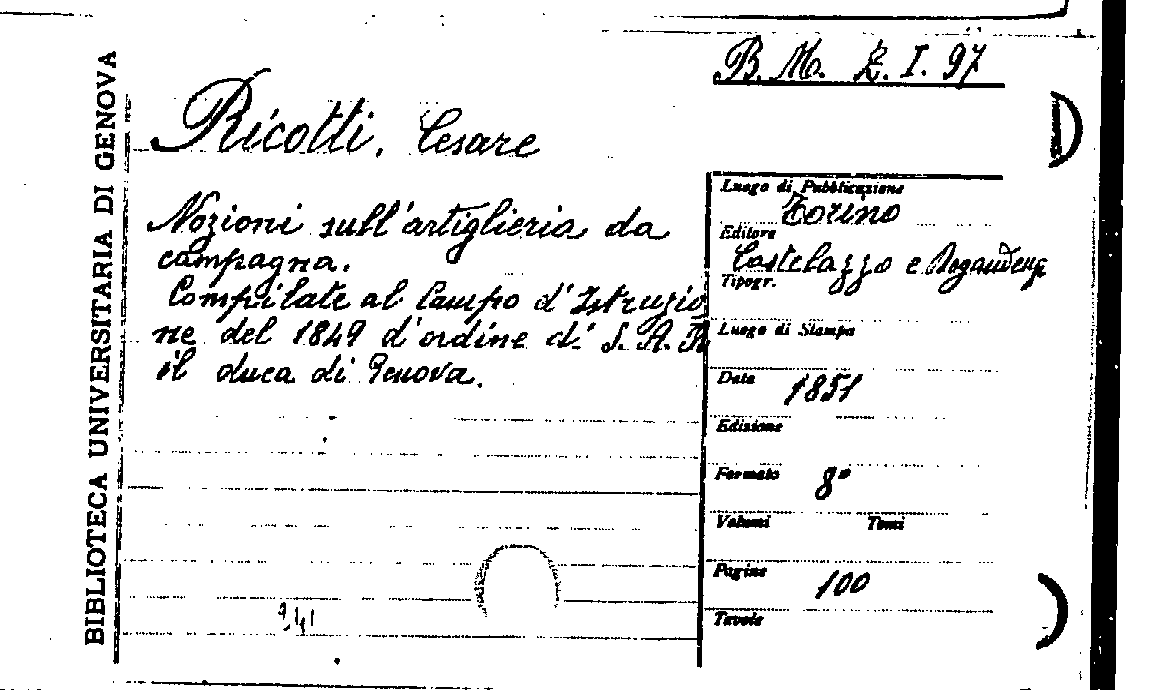 B. M. Z. I. 97
BIBLIOTECA UNIVERSITARIA DI GENOVA
Ricotti, Cesare
Nozioni sull'artiglieria da
campagna.
Compilate al Campo d'Istruzio
ne del 1849 d'ordine di S. A. R
il duca di Genova.
Luogo di Pubblicazione
Torino
Editore
Castelazzo e
Tipogr.
Luogo di Stampa
Data 1851
Edizione
Formato 8°
Volumi Tomi
Pagine 100
Tavole